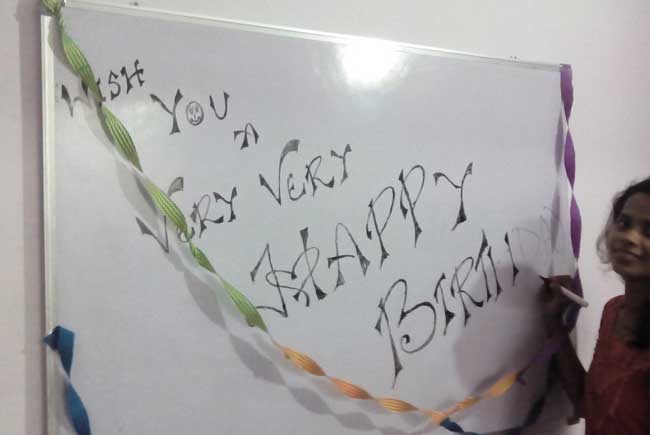 WISH YOU A
VERY VERY
HAPPY
BIRTHDA